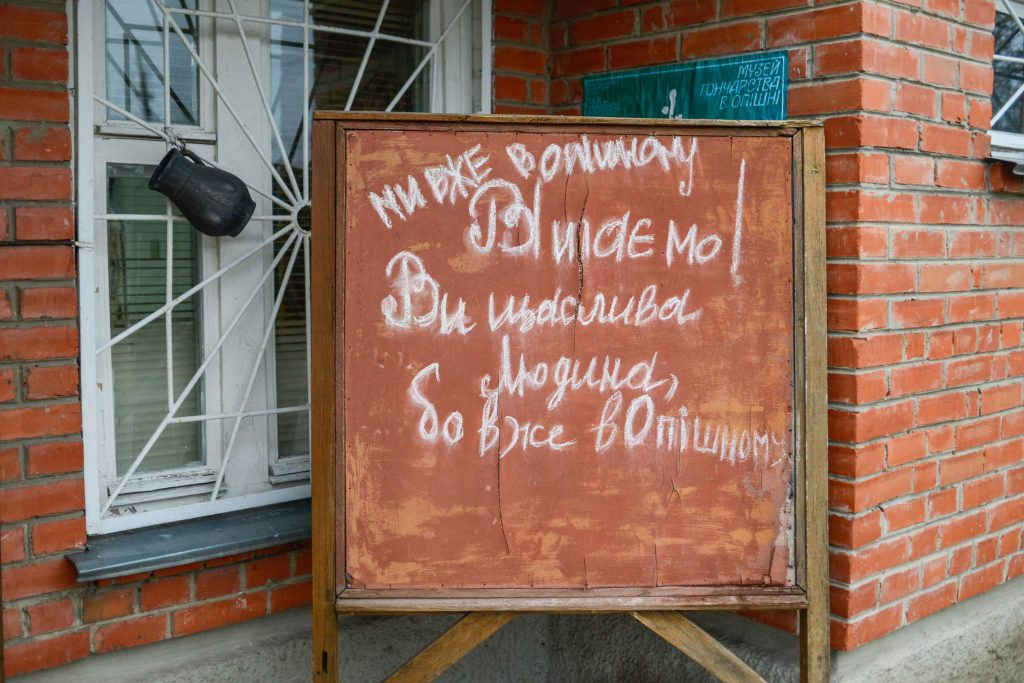 МУЗЕЙ
ГОНЧАРСТВА
В ОПІШНІ
ми вже в опішному
Вітаємо!
Ви щаслива
людина,
бо вже в Опішному